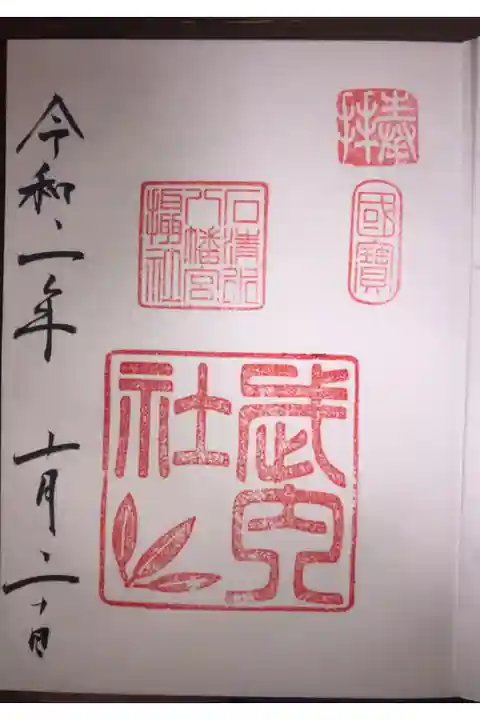 奉拝
國寶
石清水
八幡宮
攝社
武内
社
令和二年十一月二十日